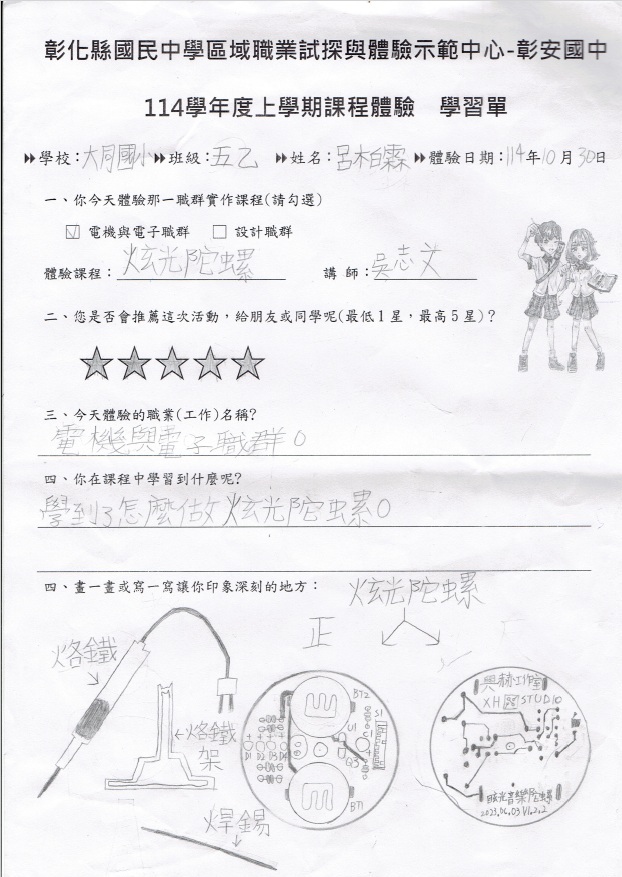 彰化縣國民中學區域職業試探與體驗示範中心-彰安國中
114學年度上學期課程體驗 學習單
學校：大同國小 班級：五乙 姓名：呂柏霖 體驗日期：114年10月30日
一、你今天體驗那一職群實作課程(請勾選)
☑ 電機與電子職群 ☐ 設計職群
體驗課程：炫光陀螺 講 師：吳志文
二、您是否會推薦這次活動，給朋友或同學呢(最低1星，最高5星)？
三、今天體驗的職業(工作)名稱?
電機與電子職群。
四、你在課程中學習到什麼呢?
學到了怎麼做炫光陀螺。
四、畫一畫或寫一寫讓你印象深刻的地方：
炫光陀螺
正
烙鐵
烙鐵架
焊錫
BT2
S1
U1
C1
D1 D2 D3 D4
Q3
BT1
興赫工作室
XH STUDIO
眩光音樂陀螺
2023.06.03 V1.2.2